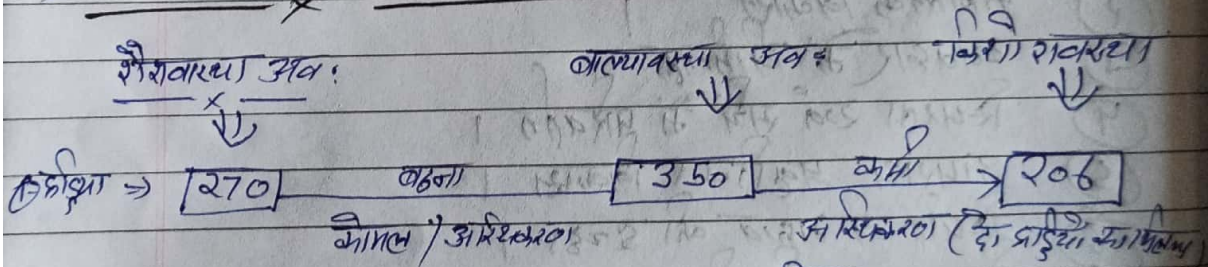 शैशवास्था अव: बाल्यावस्था अव: किशोरावस्था
हड्डिया ⇒ 270 बढना 350 कमी 206
कोमल / अस्थिकरण अस्थिकरण (दो हड्डियों का मिलन)